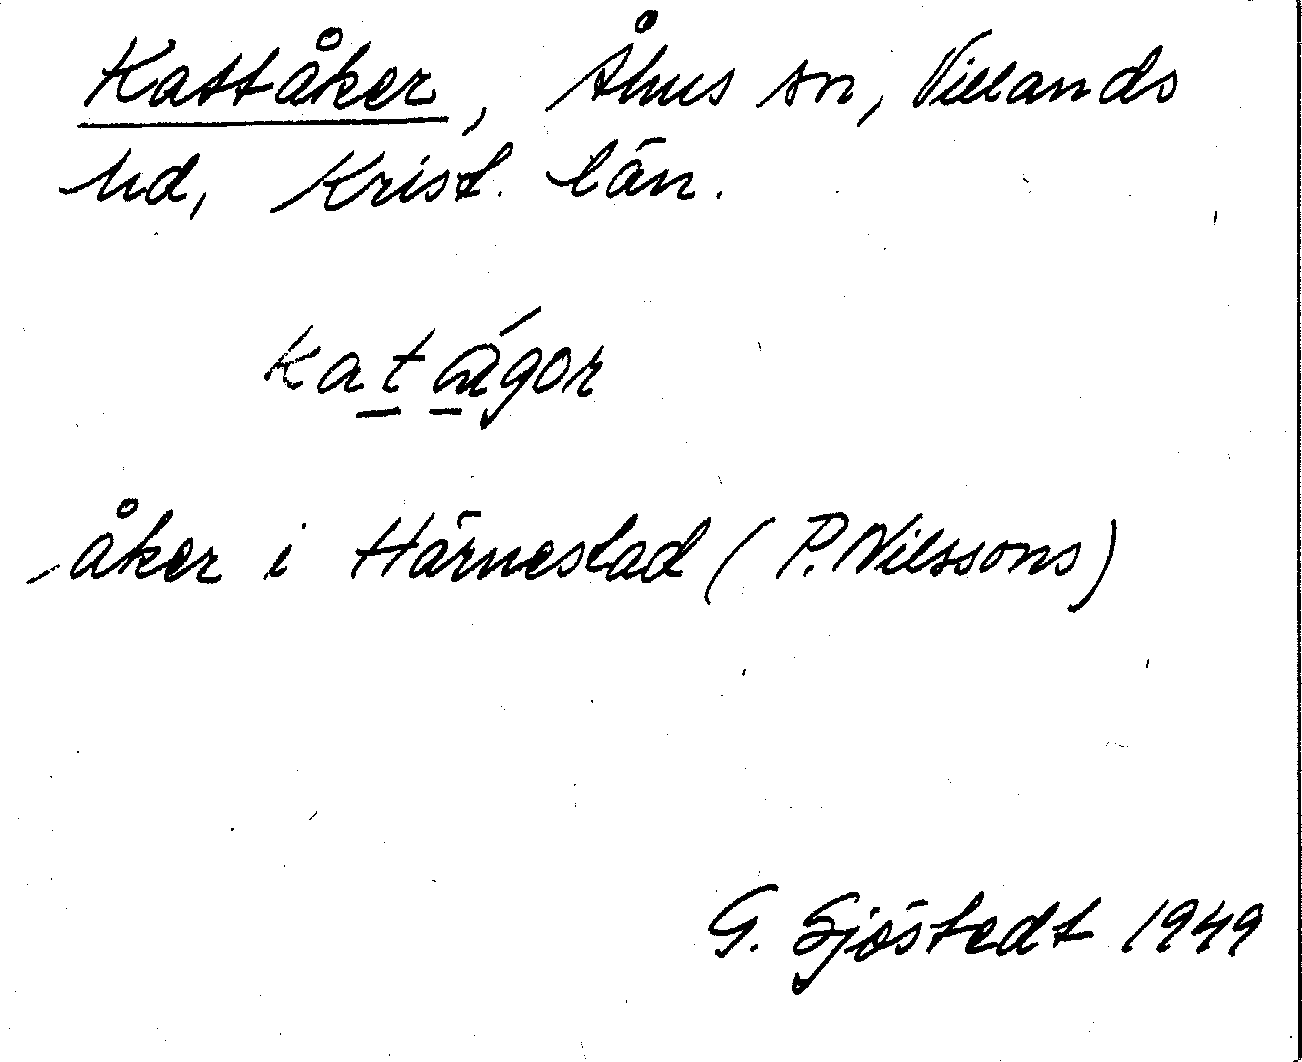 Kattåker, Åhus sn, Villands
hd, Krist. län.
katågor
åker i Härnestad (P. Nilssons)
G. Sjöstedt 1949